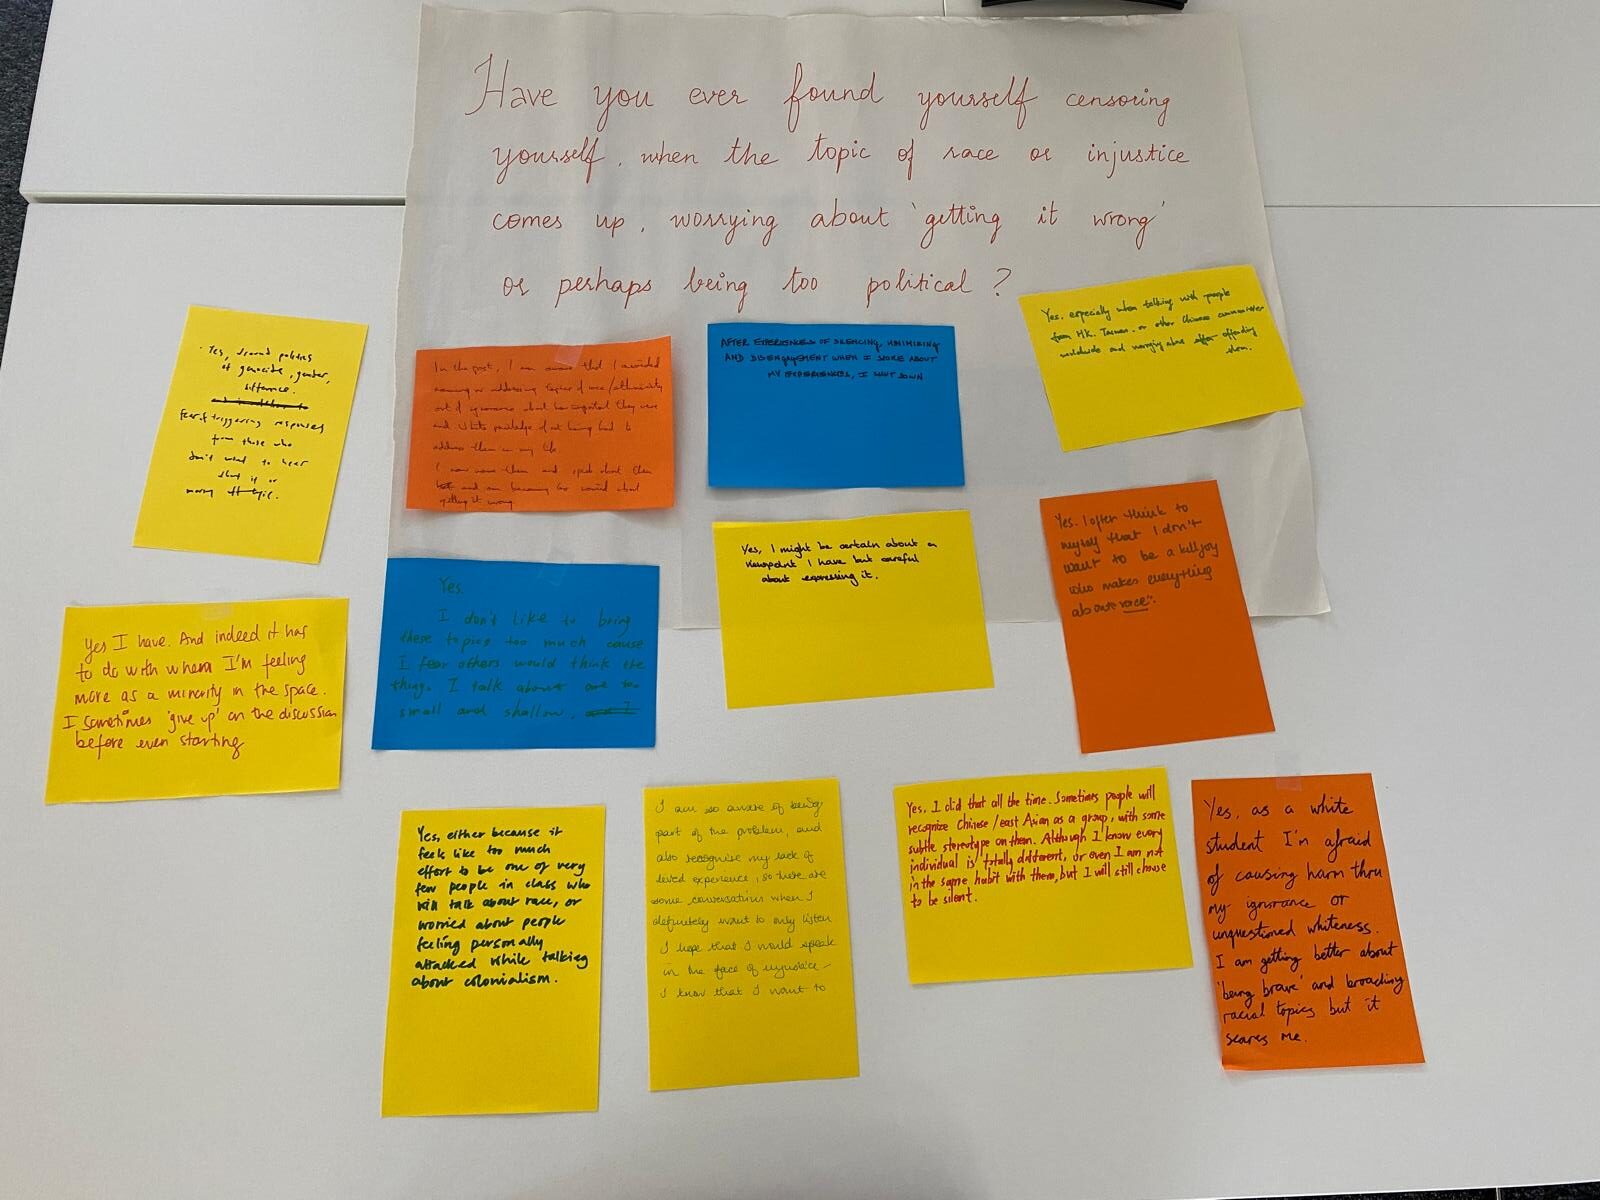 Have you ever found yourself censoring
yourself, when the topic of race or injustice
comes up, worrying about 'getting it wrong'
or perhaps being too political?
Yes, around politics
of genocide, gender,
difference.
fear of triggering responses
from those who
don't want to hear
that it or
In the past, I am aware that I avoided
naming or addressing topics of race/ethnicity
out of ignorance about how important they were
and white privilege of not being had to
address them in my life
I now name them and speak about them
and am becoming less worried about
getting it wrong
AFTER EXPERIENCES OF SILENCING, MINIMISING
AND DISENGAGEMENT WHEN I SPOKE ABOUT
MY EXPERIENCES, I SHUT DOWN
Yes, especially when talking with people
from HK, Taiwan, or other Chinese communities
worldwide and worrying about offending
them.
Yes I have. And indeed it has
to do with when I'm feeling
more as a minority in the space.
I sometimes 'give up' on the discussion
before even starting
Yes.
I don't like to bring
these topics too much cause
I fear others would think the
things I talk about are too
small and shallow.
Yes, I might be certain about a
viewpoint I have but careful
about expressing it.
Yes. I often think to
myself that I don't
want to be a killjoy
who makes everything
about "race".
Yes, either because it
feels like too much
effort to be one of very
few people in class who
will talk about race, or
worried about people
feeling personally
attacked while talking
about colonialism.
I am so aware of being
part of the problem, and
also recognise my lack of
lived experience, so there are
some conversations when I
definitely want to only listen
I hope that I would speak
in the face of injustice –
I know that I want to
Yes. I did that all the time. Sometimes people will
recognize Chinese/east Asian as a group, with some
subtle stereotype on them. Although I know every
individual is totally different, or even I am not
in the same habit with them, but I will still choose
to be silent.
Yes, as a white
student I'm afraid
of causing harm thru
my ignorance or
unquestioned whiteness.
I am getting better about
'being brave' and broaching
racial topics but it
scares me.